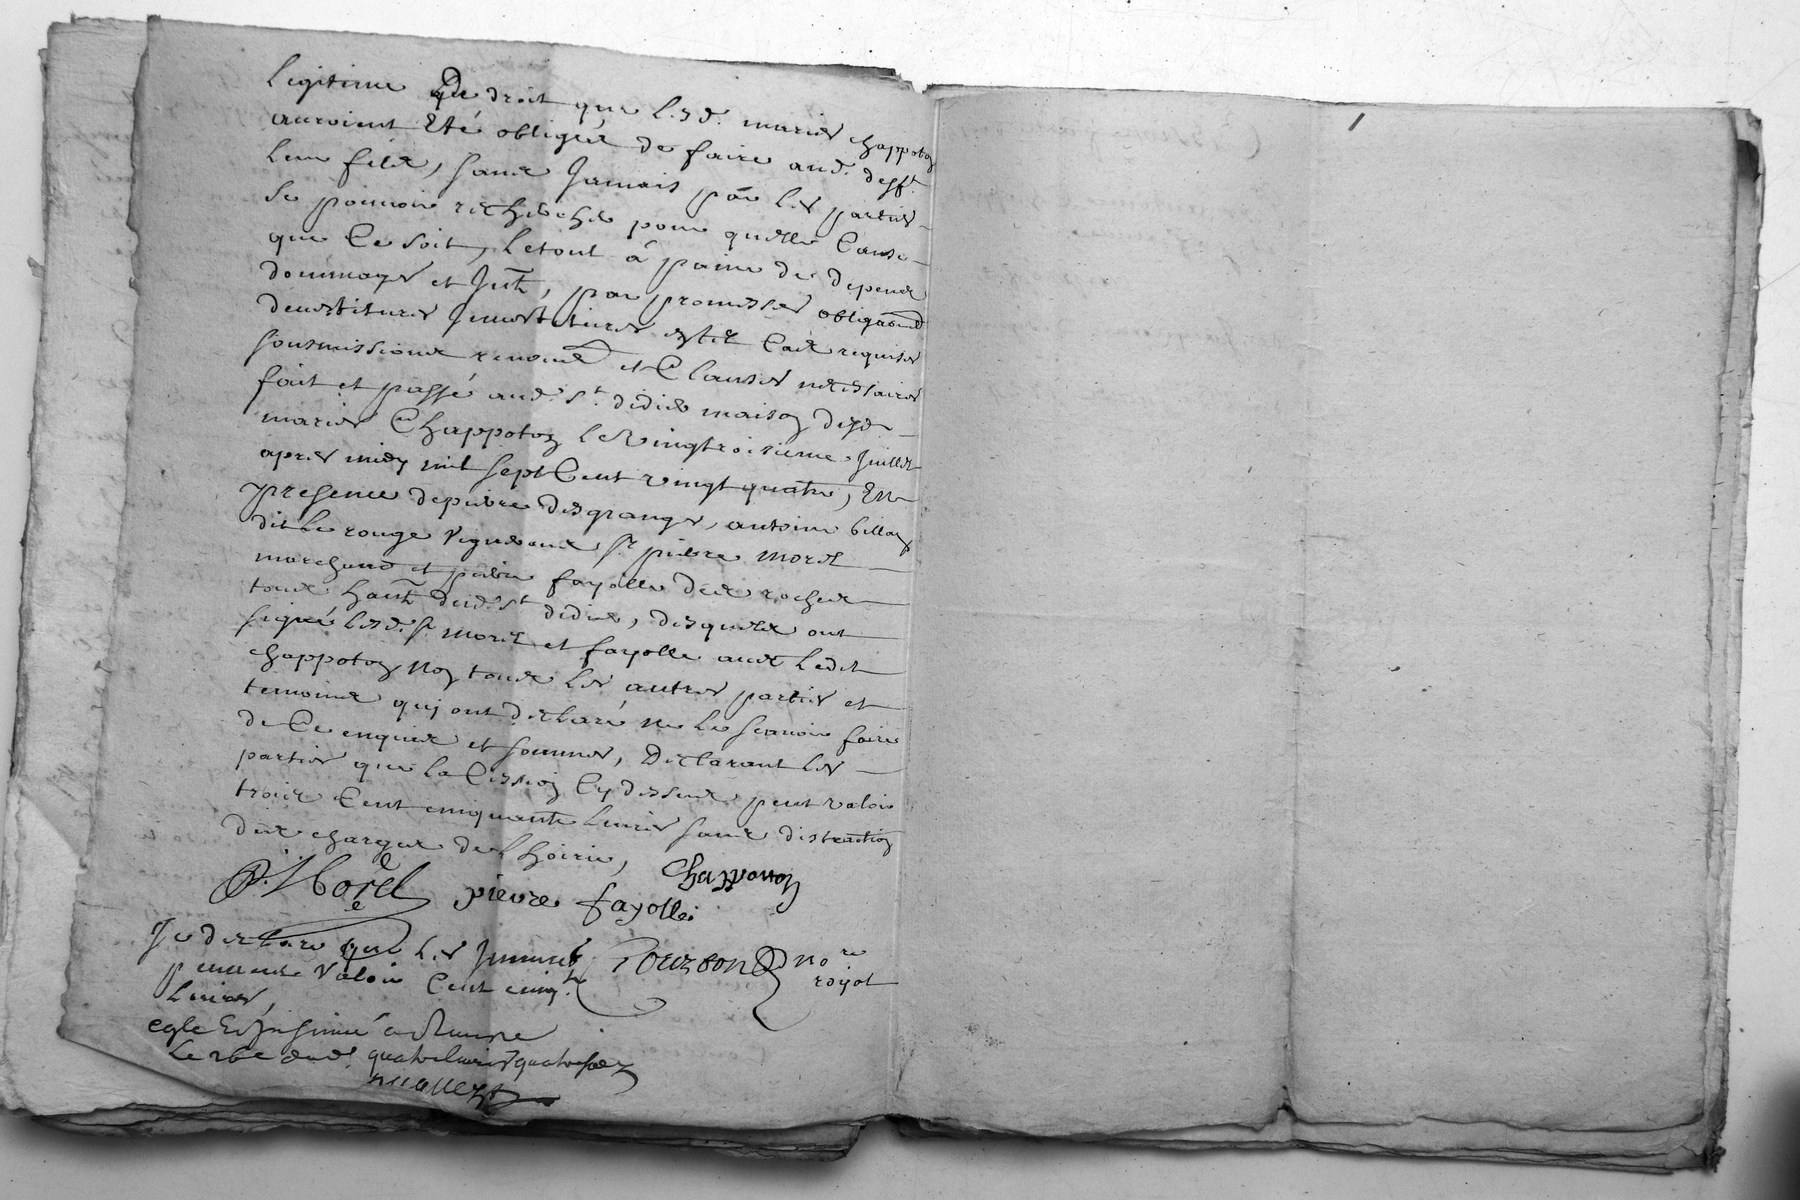 legitime de droit que lesd. mariés chappoton
auroient Eté obligés de faire aud. deff.t
leur fils, sans Jamais par les parties
se pouvoir rechercher pour quelle Cause
que Ce soit, le tout à paine de depens
dommages et Jnth, par promesses obligaons
devestitures Jnvestitures ez tel Cas requises
soumissions renonc. et Clauses necessaires
fait et passé aud. St. didier maison desd.
mariés Chappoton le Vingtroisieme Juillet
apres midy mil sept Cent vingt quatre, En
presence de pierre desgranges, antoine billon
dit le rouge Vignerons sr. pierre morel
marchand et pierre fayolle des rochers
tous habts. dud. St didier, desquels ont
signé lesd. sr. morel et fayolle avec ledit
chappoton Non tous les autres parties et
temoins qui ont declaré ne le scavoir faire
de Ce enquis et sommés, Declarant les
parties que la Cession Cy dessus peut valoir
trois Cent cinquante livres sans distraction
des charges de L hoirie,
P. Morel pierre fayolle Chappoton
Je declare que les Immeub
peuvent valoir Cent cinq.te
livres,
No.re
royal
Le aud. quatre livres quatre sols